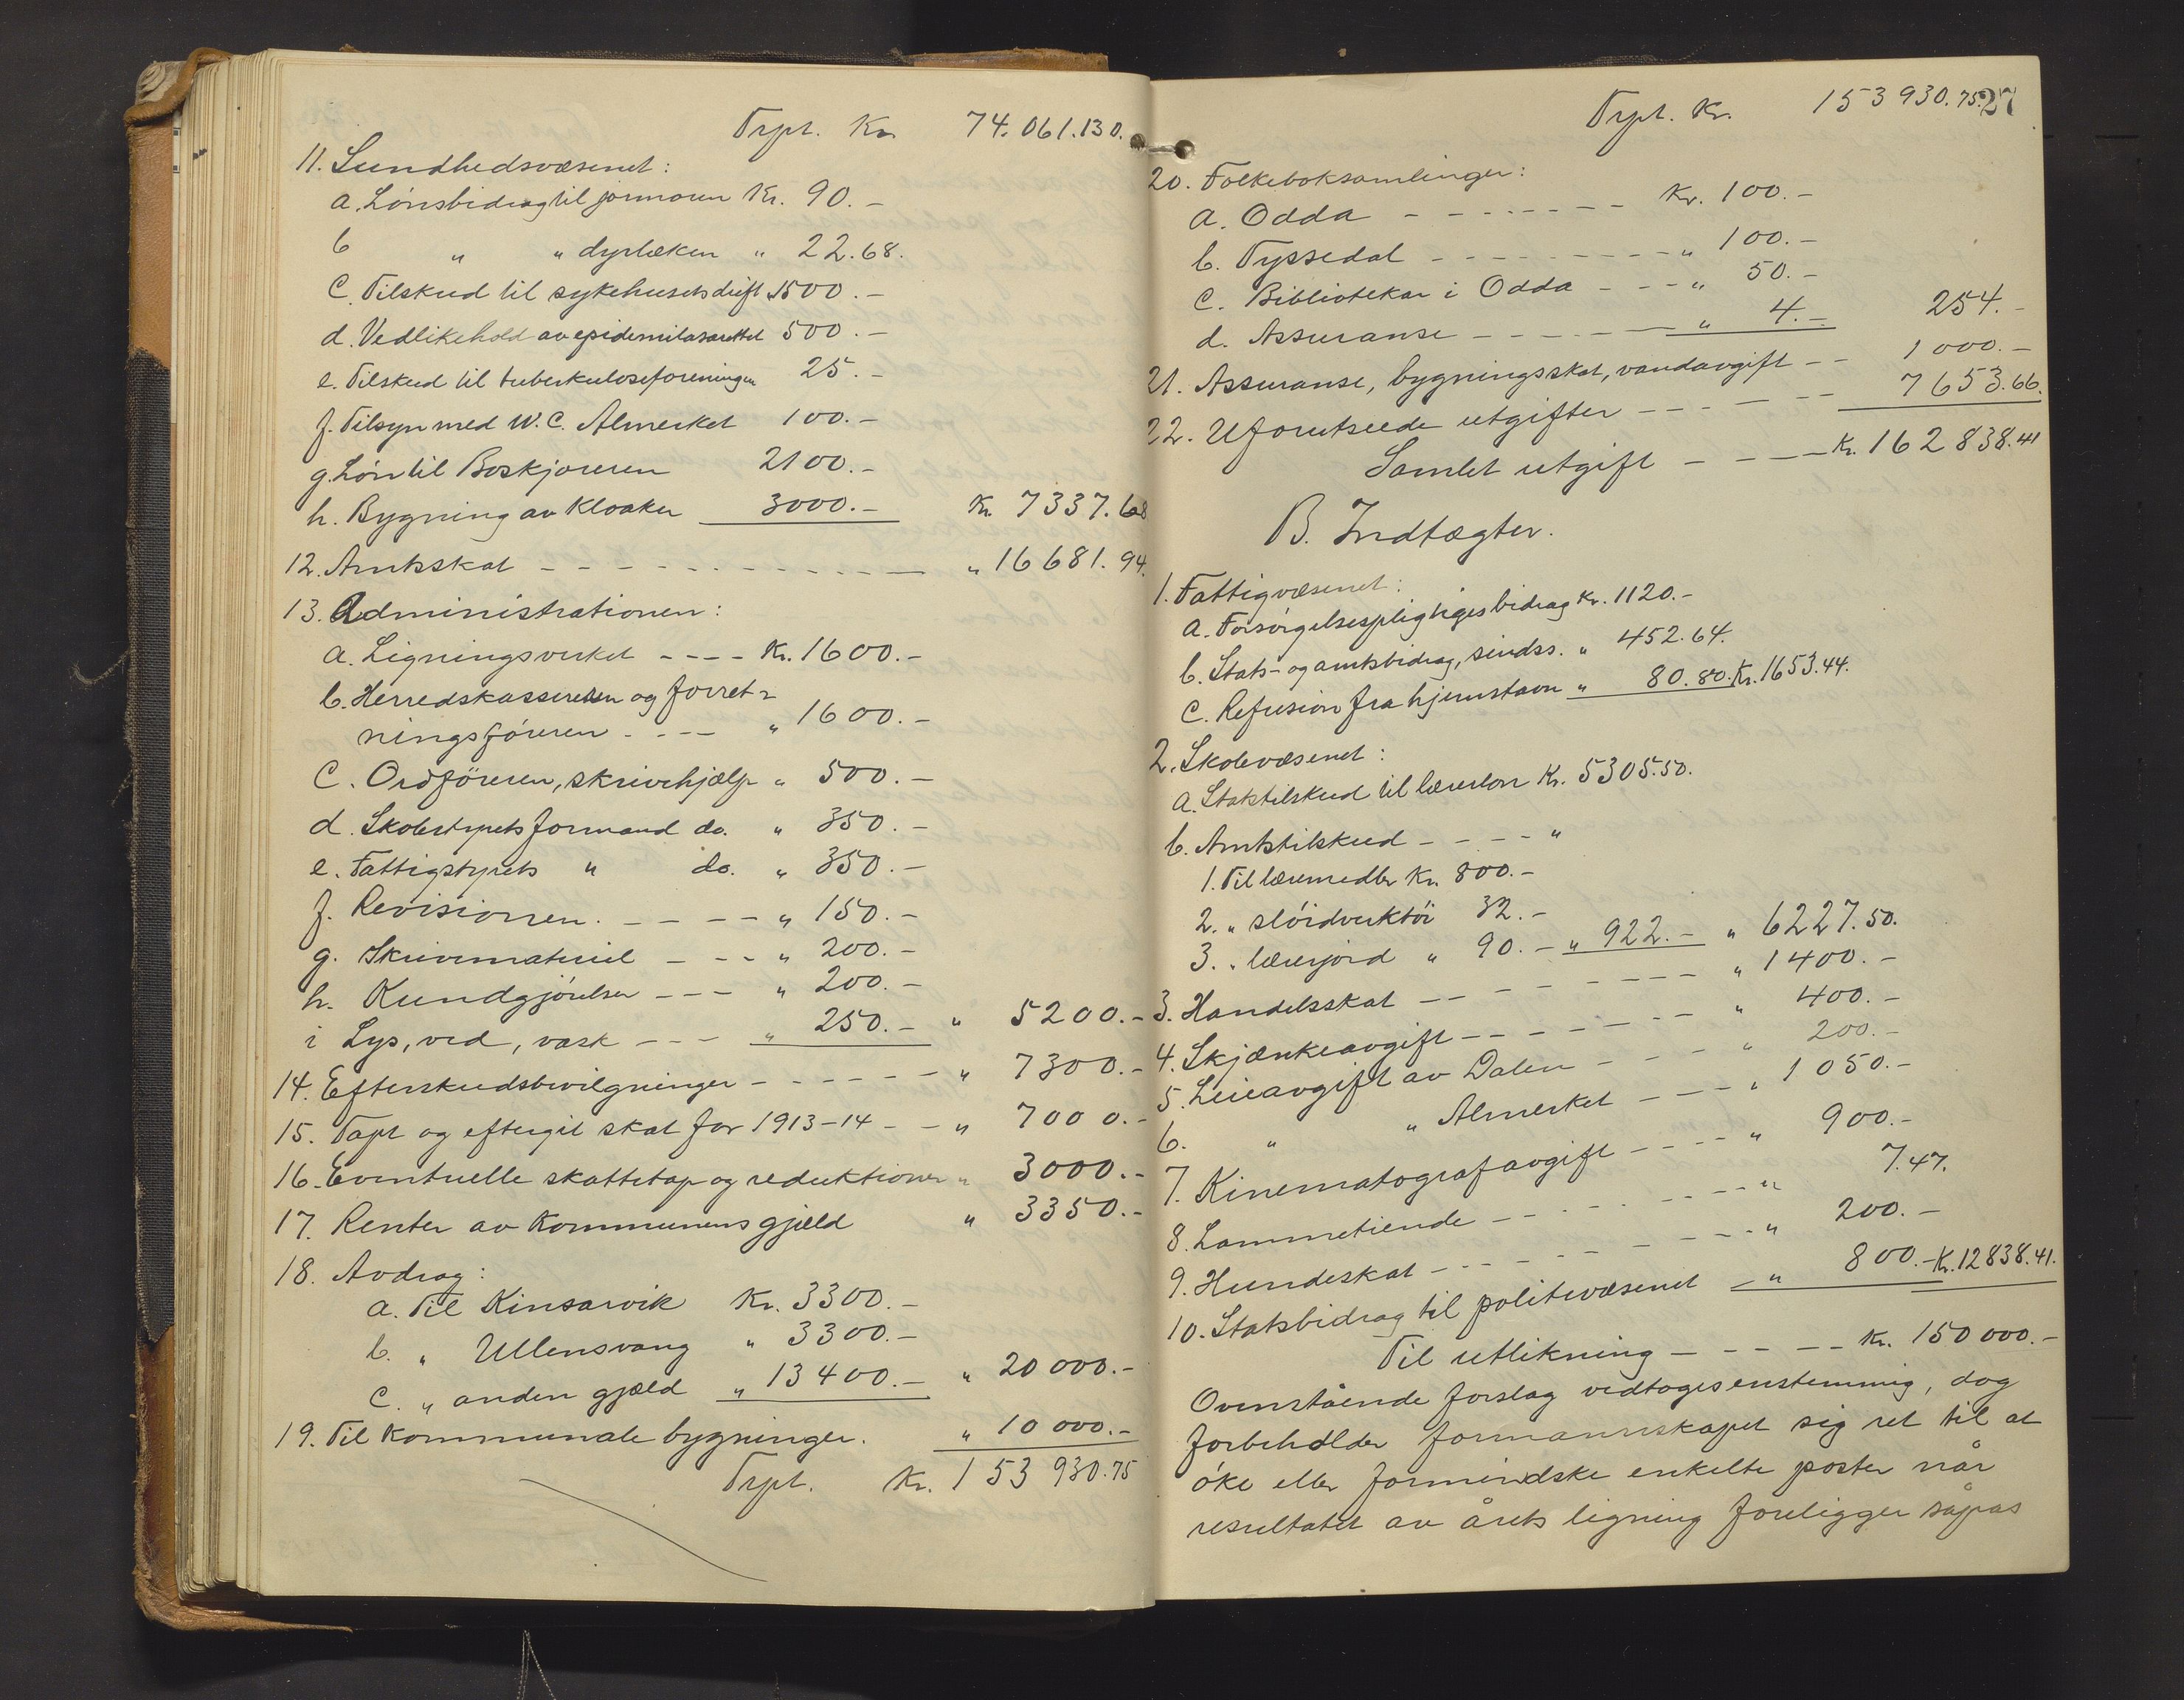 Trpt. Kr. 74.061.130.
11. Sundhedsvæsenet:
a. Lönsbidrag til jormoren Kr. 90.-
b " " dyrlæken " 22.68.
C. Tilskud til sykehusets drift 1500.-
d. Vedlikehold av epidemilasarettet 500.-
e. Tilskud til tuberkuloseforeningen 25.-
f. Tilsyn med W.C. Almerket 100.-
g. Lön til Boskjöreren 2100.-
h. Bygning av Kloaker 3000.- Kr. 7337.68
12. Amtsskat - - - - " 16681.94.
13. Administrationen:
a. Ligningsverket - - - - Kr. 1600.-
b. Herredskassereren og forret-
ningsföreren - - - - " 1600.-
C. Ordföreren, skrivehjælp " 500.-
d. Skolestyrets formand do. " 350.-
e. Fattigstyrets " do. " 350.-
f. Revisionen. - - - - " 150.-
g. Skrivemateriel - - - " 200.-
h. Kundgjörelser - - - " 200.-
i Lys, ved, vask - - - " 250.- " 5200.-
14. Efterskudsbevilgninger - - - - - " 7300.-
15. Tapt og eftergit skat for 1913-14 - - " 7000.-
16. Eventuelle skattetap og reduktioner " 3000.-
17. Renter av Kommunens gjæld " 3350.-
18. Avdrag:
a. Til Kinsarvik Kr. 3300.-
b. " Ullensvang " 3300.-
C. " anden gjæld " 13400.- " 20000.-
19. Til kommunale bygninger. " 10000.-
Trpt. Kr. 153930.75
27
Trpt. Kr. 153930.75
20. Folkeboksamlinger:
a. Odda - - - - - - Kr. 100.-
b. Tyssedal - - - - - - " 100.-
C. Bibliotekar i Odda - - - " 50.-
d. Assuranse - - - - - " 4.- 254.-
21. Assuranse, bygningsskat, vandavgift - - 1000.-
22. Uforutseede utgifter - - - - - 7653.66.
Samlet utgift - - - - Kr. 162838.41
B. Indtægter.
1. Fattigvæsenet:
a. Forsörgelsespligtiges bidrag Kr. 1120.-
b. Stats- og amtsbidrag, sindss. " 452.64.
C. Refusion fra hjemstavn " 80.80. Kr. 1653.44.
2. Skolevæsenet:
a. Statstilskud til lærerlön Kr. 5305.50.
b. Amtstilskud - - - - "
1. Til læremedler Kr. 800.-
2. " slöidverktöi 32.-
3. " lærerjord " 90.- " 922.- " 6227.50.
3. Handelsskat - - - - - - " 1400.-
4. Skjænkeavgift - - - - - - " 400.-
5. Leieavgift av Dalen - - - - " 200.-
6. " " Almerket - - - - " 1050.-
7. Kinematografavgift - - - - " 900.-
8. Lammetiende - - - - - - " 7.47.
9. Hundeskat - - - - - - " 200.-
10. Statsbidrag til politivæsenet - " 800.- Kr. 12838.41.
Til utlikning - - - - - Kr. 150000.-
Ovenstående forslag vedtoges enstemmig, dog
forbeholder formannskapet sig ret til at
öke eller formindske enkelte poster når
resultatet av årets ligning foreligger såpas